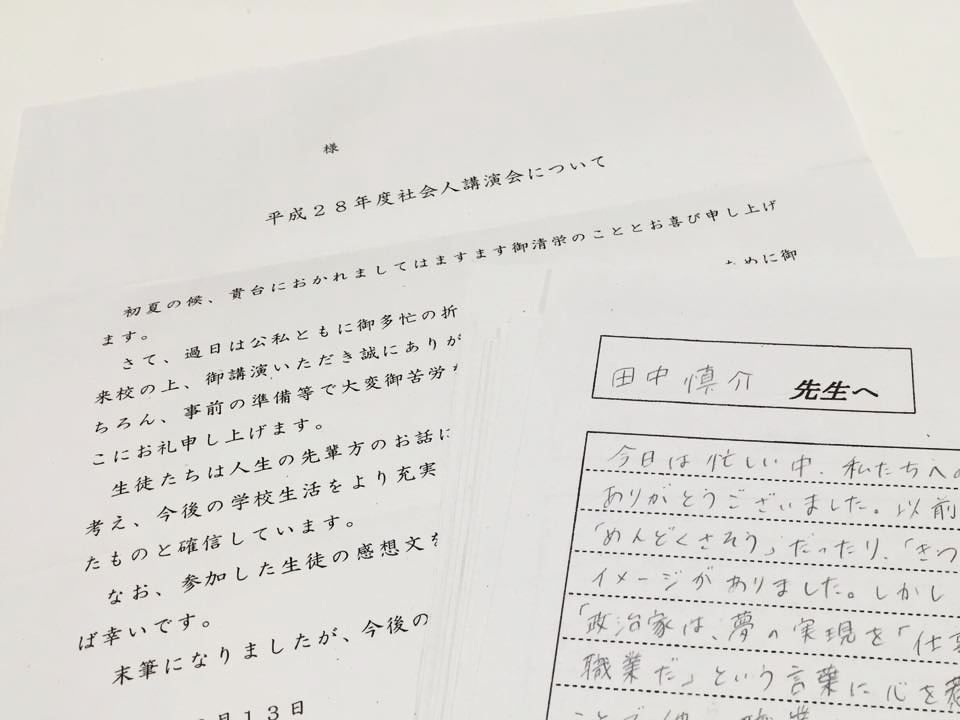 様
平成28年度社会人講演会について
初夏の候、貴台におかれましてはますます御清栄のこととお喜び申し上げ
ます。
さて、過日は公私ともに御多忙の折
ために御
来校の上、御講演いただき誠にありが
ちろん、事前の準備等で大変御苦労
こにお礼申し上げます。
生徒たちは人生の先輩方のお話に
考え、今後の学校生活をより充実
たものと確信しています。
なお、参加した生徒の感想文を
ば幸いです。
末筆になりましたが、今後の
月13日
田中慎介 先生へ
今日は忙しい中、私たちへの
ありがとうございました。以前
「めんどくさそう」だったり、「きつ
イメージがありました。しかし
「政治家は、夢の実現を「仕事
職業だ」という言葉に心を